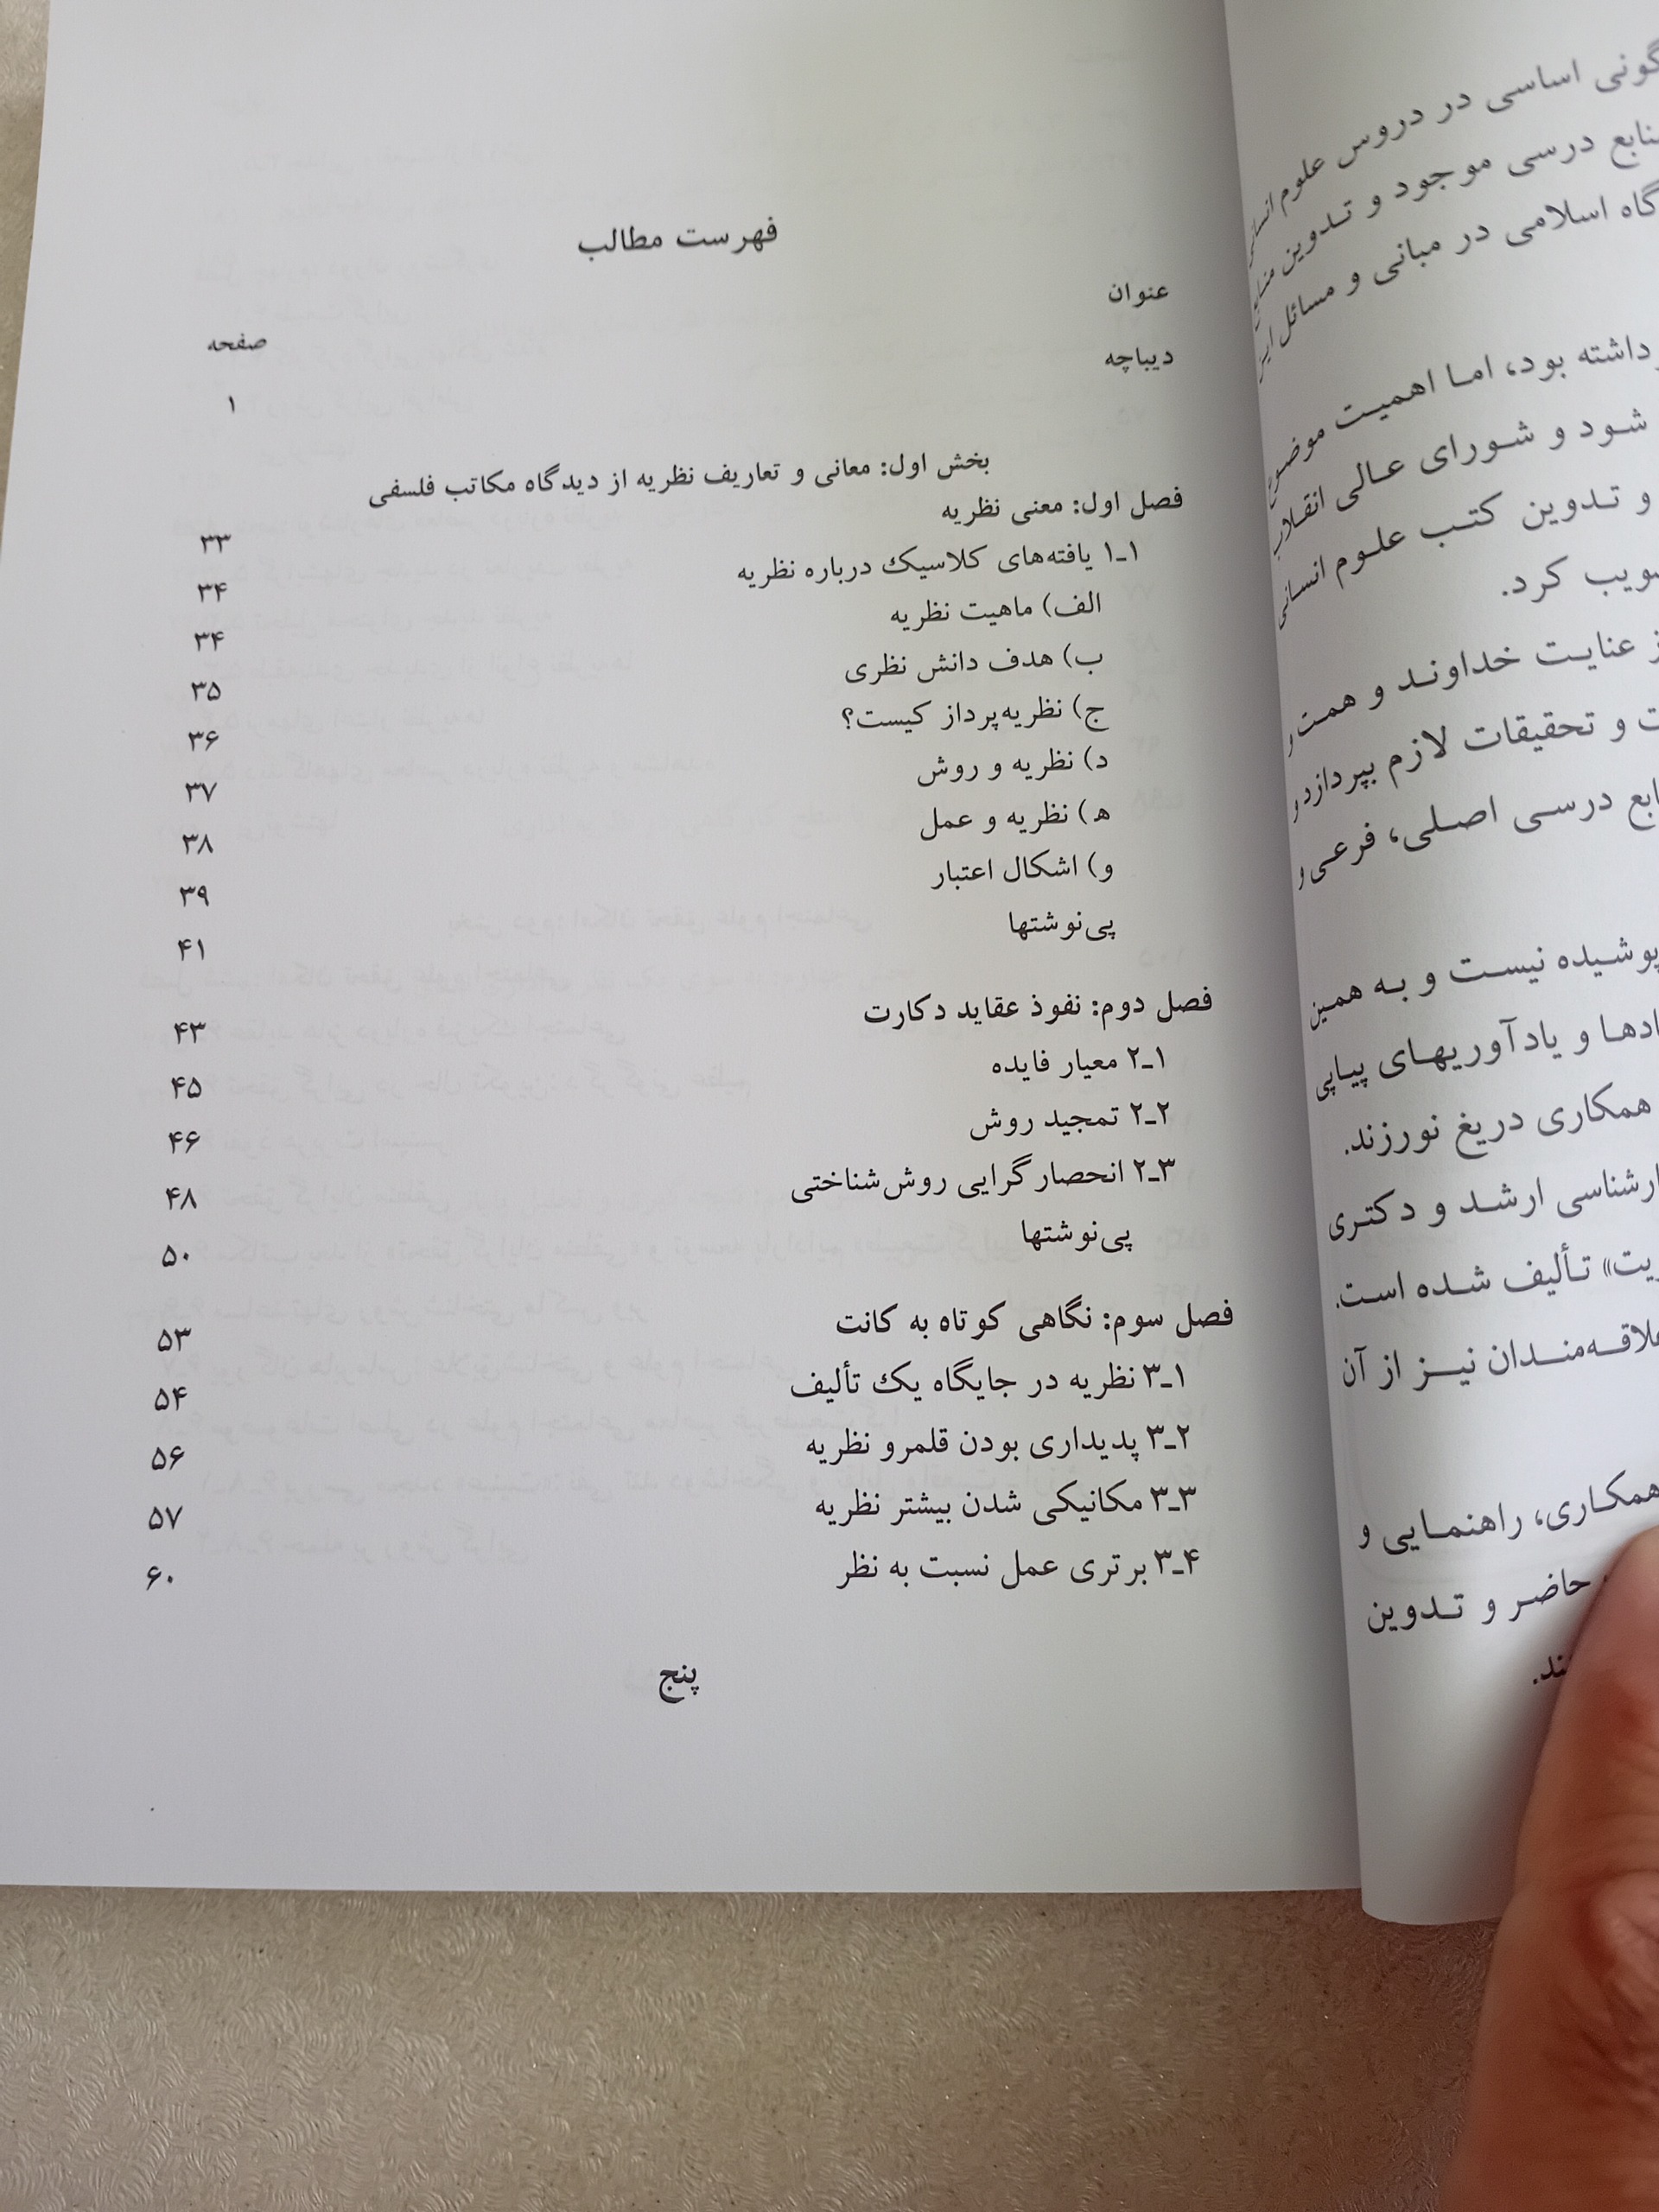 گونی اساسی در دروس علوم
منابع درسی موجود و تدوین
گاه اسلامی در مبانی و مسائل
داشته بود، اما اهمیت
شود و شورای عالی انقلاب
و تدوین کتب علوم انسانی
تصویب کرد.
از عنایت خداوند و همت و
ت و تحقیقات لازم بپردازد و
منابع درسی اصلی، فرعی و
پوشیده نیست و به همین
ادها و یادآوریهای پیاپی
همکاری دریغ نورزند.
کارشناسی ارشد و دکتری
یت» تألیف شده است.
علاقه‌مندان نیز از آن
همکاری، راهنمایی و
حاضر و تدوین
ند.
فهرست مطالب
عنوان صفحه
دیباچه ۱
بخش اول: معانی و تعاریف نظریه از دیدگاه مکاتب فلسفی
فصل اول: معنی نظریه ۳۳
۱ـ۱ یافته‌های کلاسیک درباره نظریه ۳۴
الف) ماهیت نظریه ۳۴
ب) هدف دانش نظری ۳۵
ج) نظریه‌پرداز کیست؟ ۳۶
د) نظریه و روش ۳۷
ه) نظریه و عمل ۳۸
و) اشکال اعتبار ۳۹
پی‌نوشتها ۴۱
فصل دوم: نفوذ عقاید دکارت ۴۳
۲ـ۱ معیار فایده ۴۵
۲ـ۲ تمجید روش ۴۶
۲ـ۳ انحصارگرایی روش‌شناختی ۴۸
پی‌نوشتها ۵۰
فصل سوم: نگاهی کوتاه به کانت ۵۳
۳ـ۱ نظریه در جایگاه یک تألیف ۵۴
۳ـ۲ پدیداری بودن قلمرو نظریه ۵۶
۳ـ۳ مکانیکی شدن بیشتر نظریه ۵۷
۳ـ۴ برتری عمل نسبت به نظر ۶۰
پنج